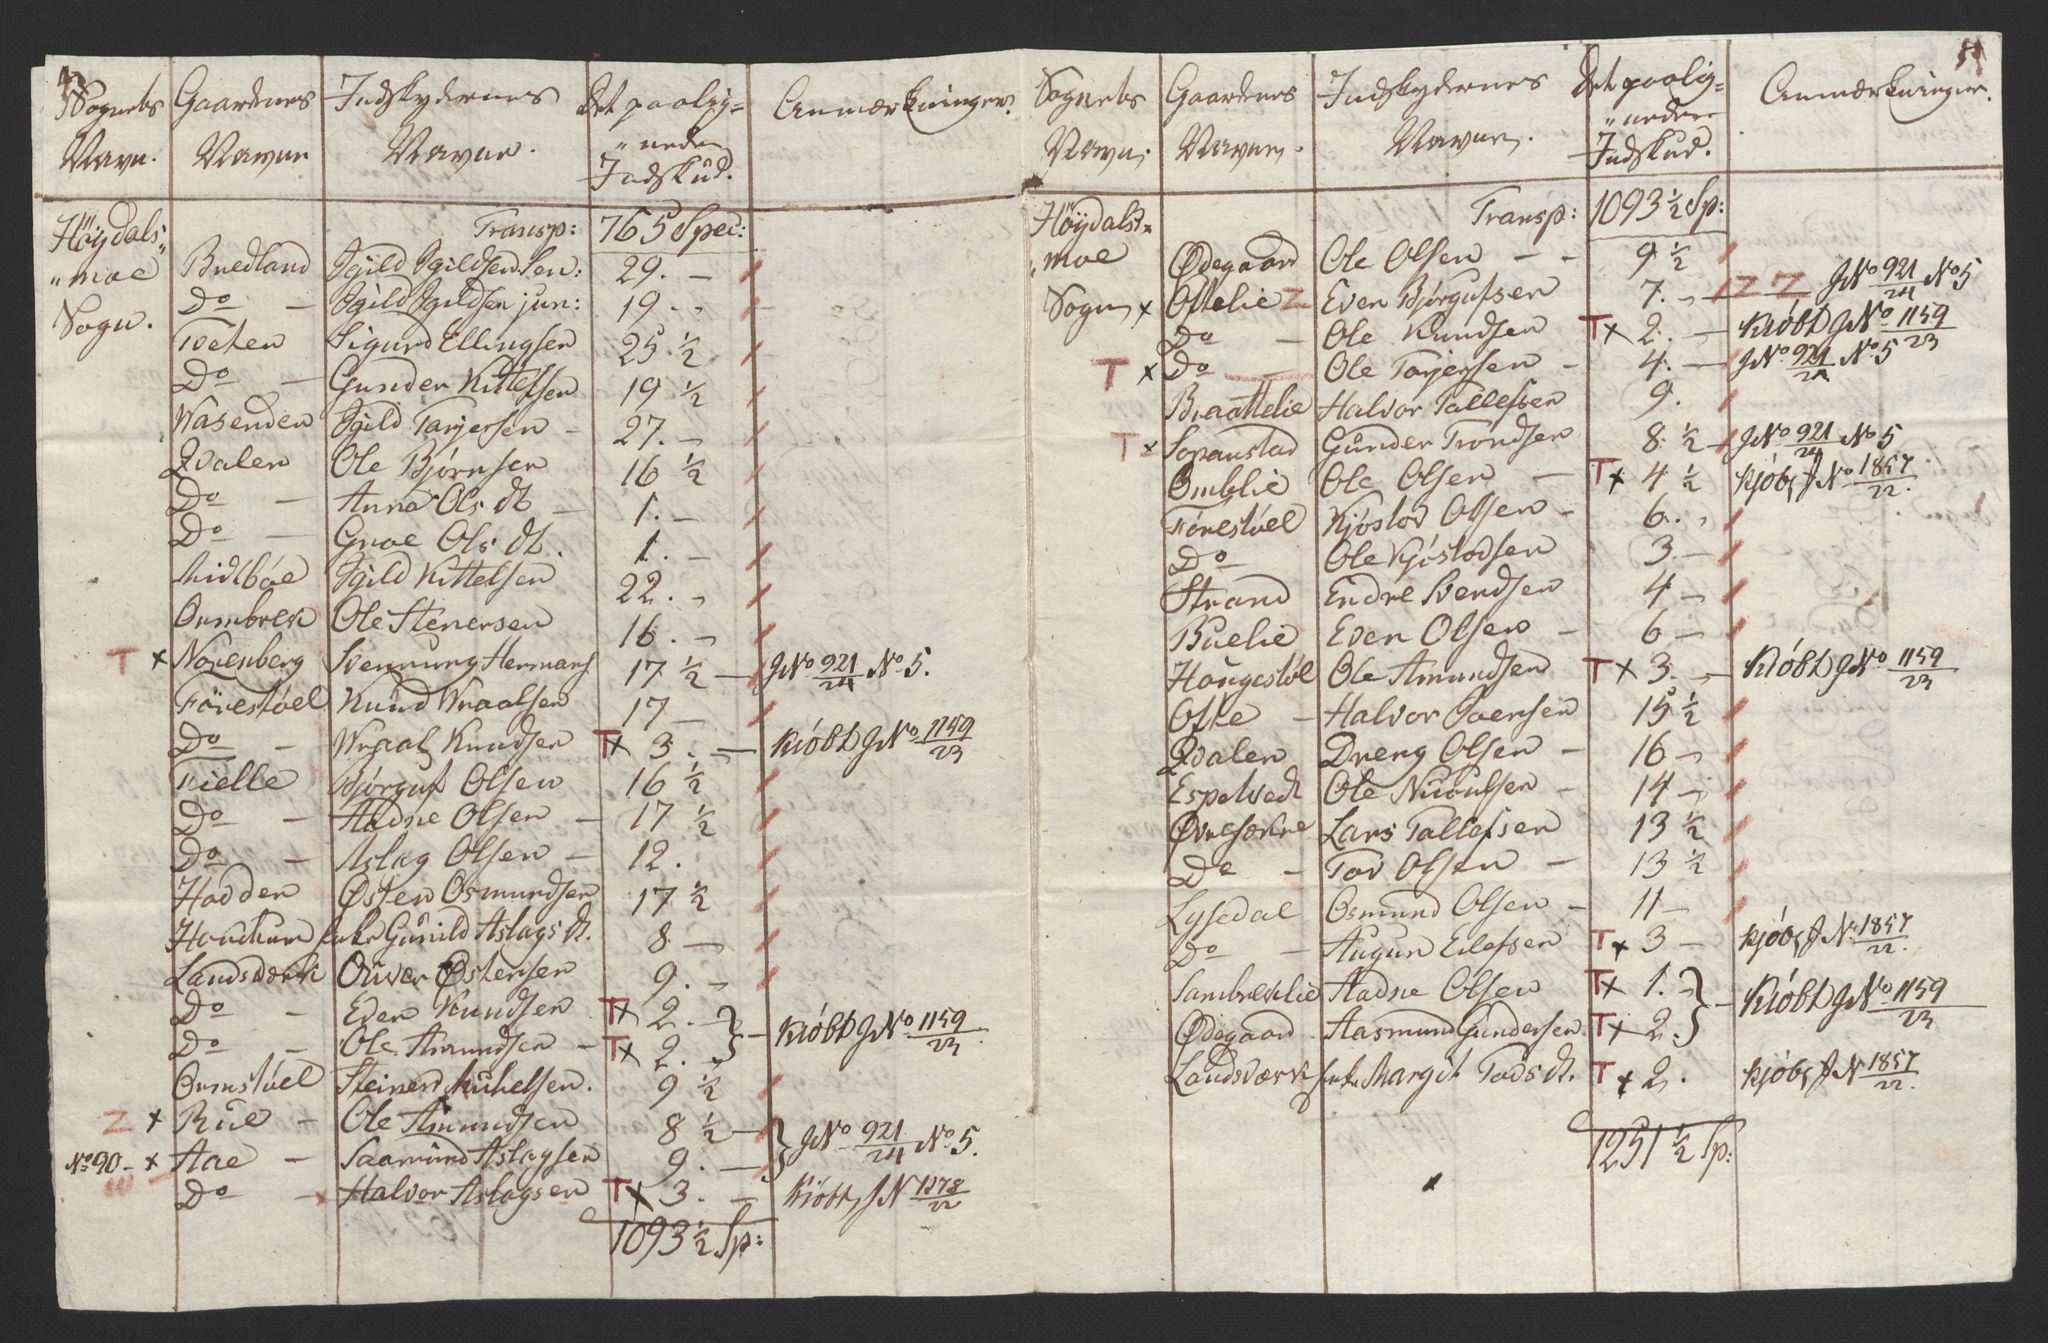 Sognets Navn. | Gaardenes Navne | Indskydernes Navne. | Det paalig„nede Indskud. | Anmærkninger.
Høydals„ | Transp: | 765 Spec:
„moe | Bredland | Igild Igildsen Sen: | 29. –
Sogn. | Do – | Igild Igildsen jun: | 19 „
Tveten | Sigurd Ellingsen | 25 ½
Do – | Gunder Kittelsen | 19 ½
Wasenden | Igild Tarjersen – | 27. –
Qvalen | Ole Bjørnsen | 16 ½
Do – | Anne Ols dt – | 1. –
Do – | Groe Ols dt. | 1. –
Midtbøe | Igild Kittelsen | 22. „
Ormbrek | Ole Stenersen | 16. –
T x | Norenberg | Svennung Hermans | 17 ½ – | JNo 921/24 No 5.
Førestøel | Knud Wraalsen | 17 –
Do – | Wraal Knudsen | Tx 3. – | Kiøbt JNo 1159/23
Fielle | Bjørguf Olsen | 16 ½
Do – | Aadne Olsen – | 17 ½
Do – | Aslag Olsen – | 12.
Hadden | Østen Osmundsen | 17 ½
enke Gunild Aslags dt. | 8 –
Landsværk | Østensen | 9. –
Do – | Even Knudsen | Tx 2. –
Do – | Ole Amundsen – | Tx 2. „ | Kiøbt JNo 1159/23
Ormstøel | Steiner Mickelsen. | 9 ½
Z x | Rue – | Ole Amundsen | 8 ½ –
No 90 – x | Aae – | Saamund Aslagsen | 9. – | JNo 921/24 No 5.
Do – | Halvor Aslagsen | Tx 3. – | Kiøbt, J N 1278/22
1093 ½ Sp:
Sognets Navn. | Gaardenes Navne. | Indskydernes Navne. | Det paalig„nede Indskud. | Anmærkninger.
Høydals„ | Transp: | 1093 ½ Sp:
„moe | Ødegaard | Ole Olsen – – | 9 ½
Sogn x | Oftelie Z | Even Bjørgufsen | 7. „ | Z Z JNo 921/24 No 5
Do – | Ole Knudsen | Tx 2. – | Kiøbt JNo 1159/23
T x | Do – | Ole Torjersen – | 4. – | JNo 921/24 No 5
Braattelie | Halvor Tallefsen | 9.
T x | Gunder Trondsen | 8 ½ – | JNo 921/24 No 5
Omlie | Ole Olsen – | Tx 4 ½ | Kjøbt JNo 1857/22.
Førestøel | Kjøstov Olsen – | 6. „
Do – | Ole Kjøstovsen | 3. –
Strand | Endre Svendsen | 4 –
Buelie | Even Olsen – | 6 –
Haugestøl | Ole Amundsen | Tx 3. – | Kiøbt JNo 1159/23
Ofte – | Halvor Svensen | 15 ½
Qvalen | Dreng Olsen – | 16 –
Espetvedt | Ole Niculsen – | 14 –
Lars Tallefsen | 13 ½
Do – | Tov Olsen – | 13 ½
Lysedal | Osmund Olsen – | 11 –
Do – | Augun Eilefsen | Tx 3 – | Kjøbt JNo 1857/22.
Sambreklie | Aadne Olsen | Tx 1. „
Ødegaard | Aasmund Gundersen | Tx 2. | Kiøbt JNo 1159/23
Landsværk | enke Margit Tovs dt. | Tx 2. | Kjøbt J N 1857/22.
1251 ½ Sp: